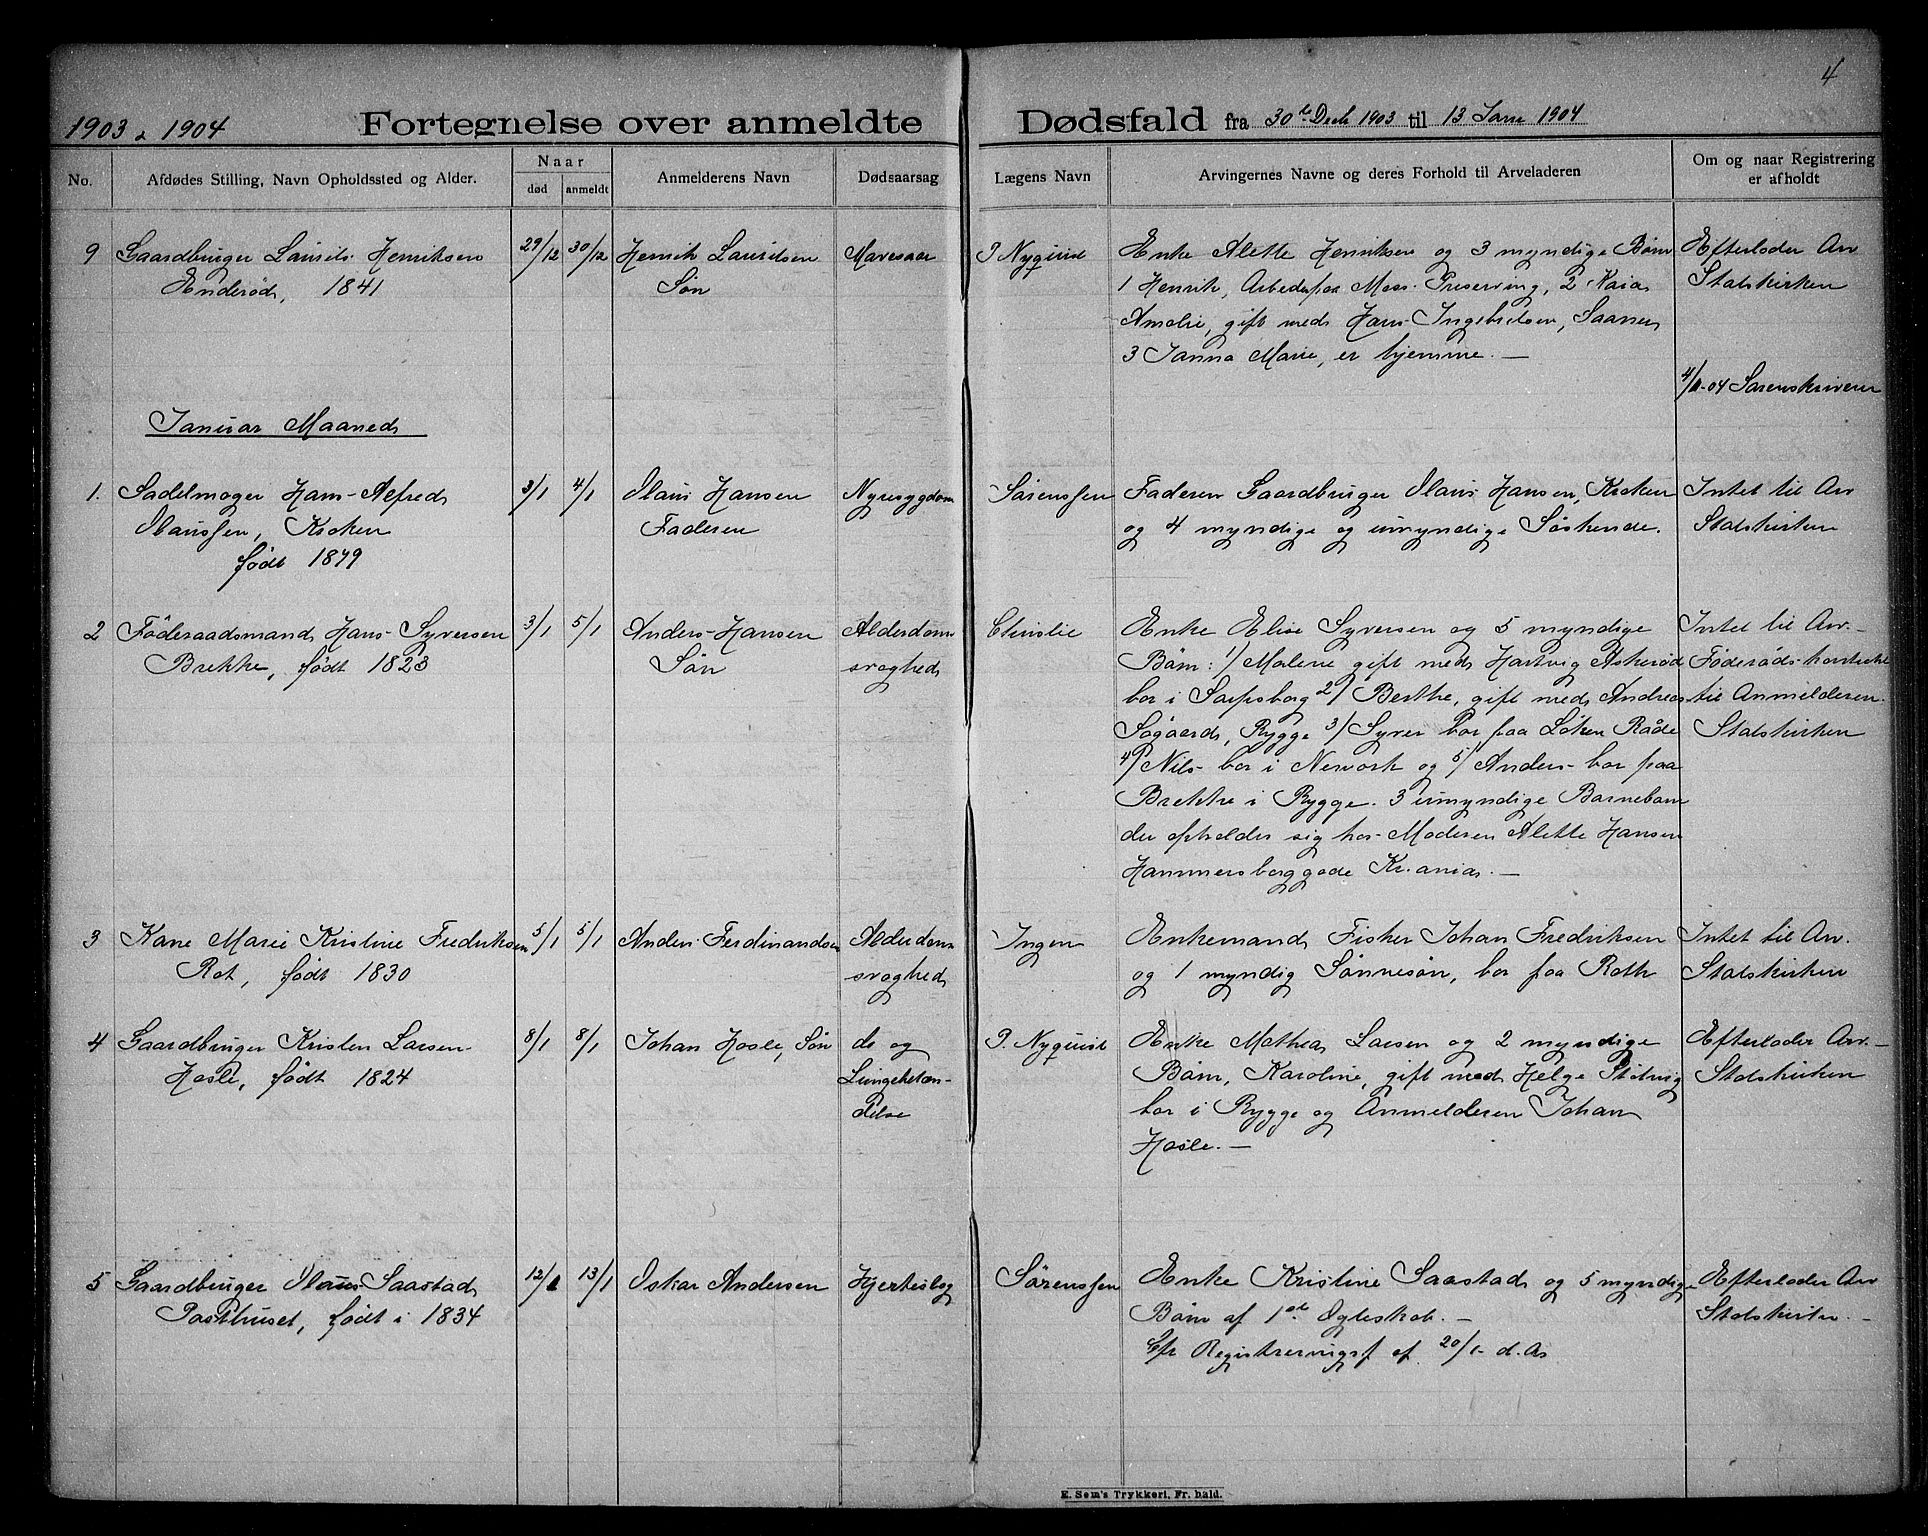 4
1903 & 1904 Fortegnelse over anmeldte Dødsfald fra 30te Decb 1903 til 13 Janr 1904
No. Afdødes Stilling, Navn Opholdssted og Alder. Naar død anmeldt Anmelderens Navn Dødsaarsag Lægens Navn Arvingernes Navne og deres Forhold til Arveladeren Om og naar Registrering er afholdt
9 Gaardbruger Laurits Henriksen 29/12 30/12 Henrik Lauridsen Mavesaar P Nyquist Enke Alette Henriksen og 3 myndige Børn Efterlader Arv
Enderød, 1841 Søn 1 Henrik, Arbeder paa Moss Preserving, 2 Kaia Statskirken
Amelie, gift med Hans Ingebretsen, Saanen
3 Janna Marie, er hjemme. —
4/1-04 Sorenskriveren
Januar Maaned
1. Sadelmager Hans Alfred 3/1 4/1 Olaus Hansen Nyresygdom Sørenssen Faderen Gaardbruger Olaus Hansen, Kroken Intet til Arv
Olaussen, Kroken Faderen og 4 myndige og umyndige Søskende. Statskirken
født 1879
2 Føderaadsmand Hans Syversen 3/1 5/1 Anders Hansen Alderdoms Christie Enke Elise Syversen og 5 myndige Intet til Arv.
Brekke, født 1823 Søn svaghed Børn: 1/ Malene gift med Hartvig Askerød Føderåds-kontrakt
bor i Sarpsborg 2/ Berthe, gift med Andreas til Anmelderen.
Søgaard, Rygge 3/ Syver bor paa Løken Råde Statskirken
4/ Nils bor i Nework og 5/ Anders bor paa
Brekke i Rygge. 3 umyndige Barnebarn
der opholder sig hos Moderen Alette Hansen
Hammersborggade Kr.ania. —
3 Kane Marie Kristine Fredriksen 5/1 5/1 Anders Ferdinandsen Alderdoms Ingen Enkemand Fisker Johan Fredriksen Intet til Arv.
Rot, født 1830 svaghed og 1 myndig Sønnesøn, bor paa Roth Statskirken
4 Gaardbruger Kristen Larsen 8/1 8/1 Johan Hasle, Søn do og P. Nyquist Enke Mathea Larsen og 2 myndige Efterlader Arv. —
Hasle, født 1824 Lungebetæn- Børn, Karoline, gift med Helge Stotvig Statskirken
delse bor i Rygge og Anmelderen Johan
Hasle. —
5 Gaardbruger Olaus Saastad 12/1 13/1 Oskar Andersen Hjerteslag Sørenssen Enke Kristine Saastad og 5 myndige Efterlader Arv
Posthuset, født i 1834 Børn af 1ste Egteskab. — Statskirken. —
Cfr Registreringsf af 20/1- d. As
E. Sem's Trykkeri, Fr.hald.